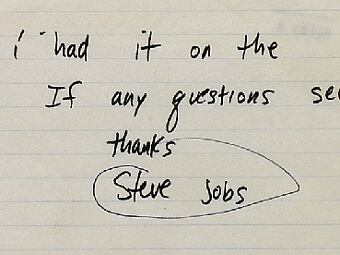 i had it on the
If any questions see
thanks
Steve Jobs